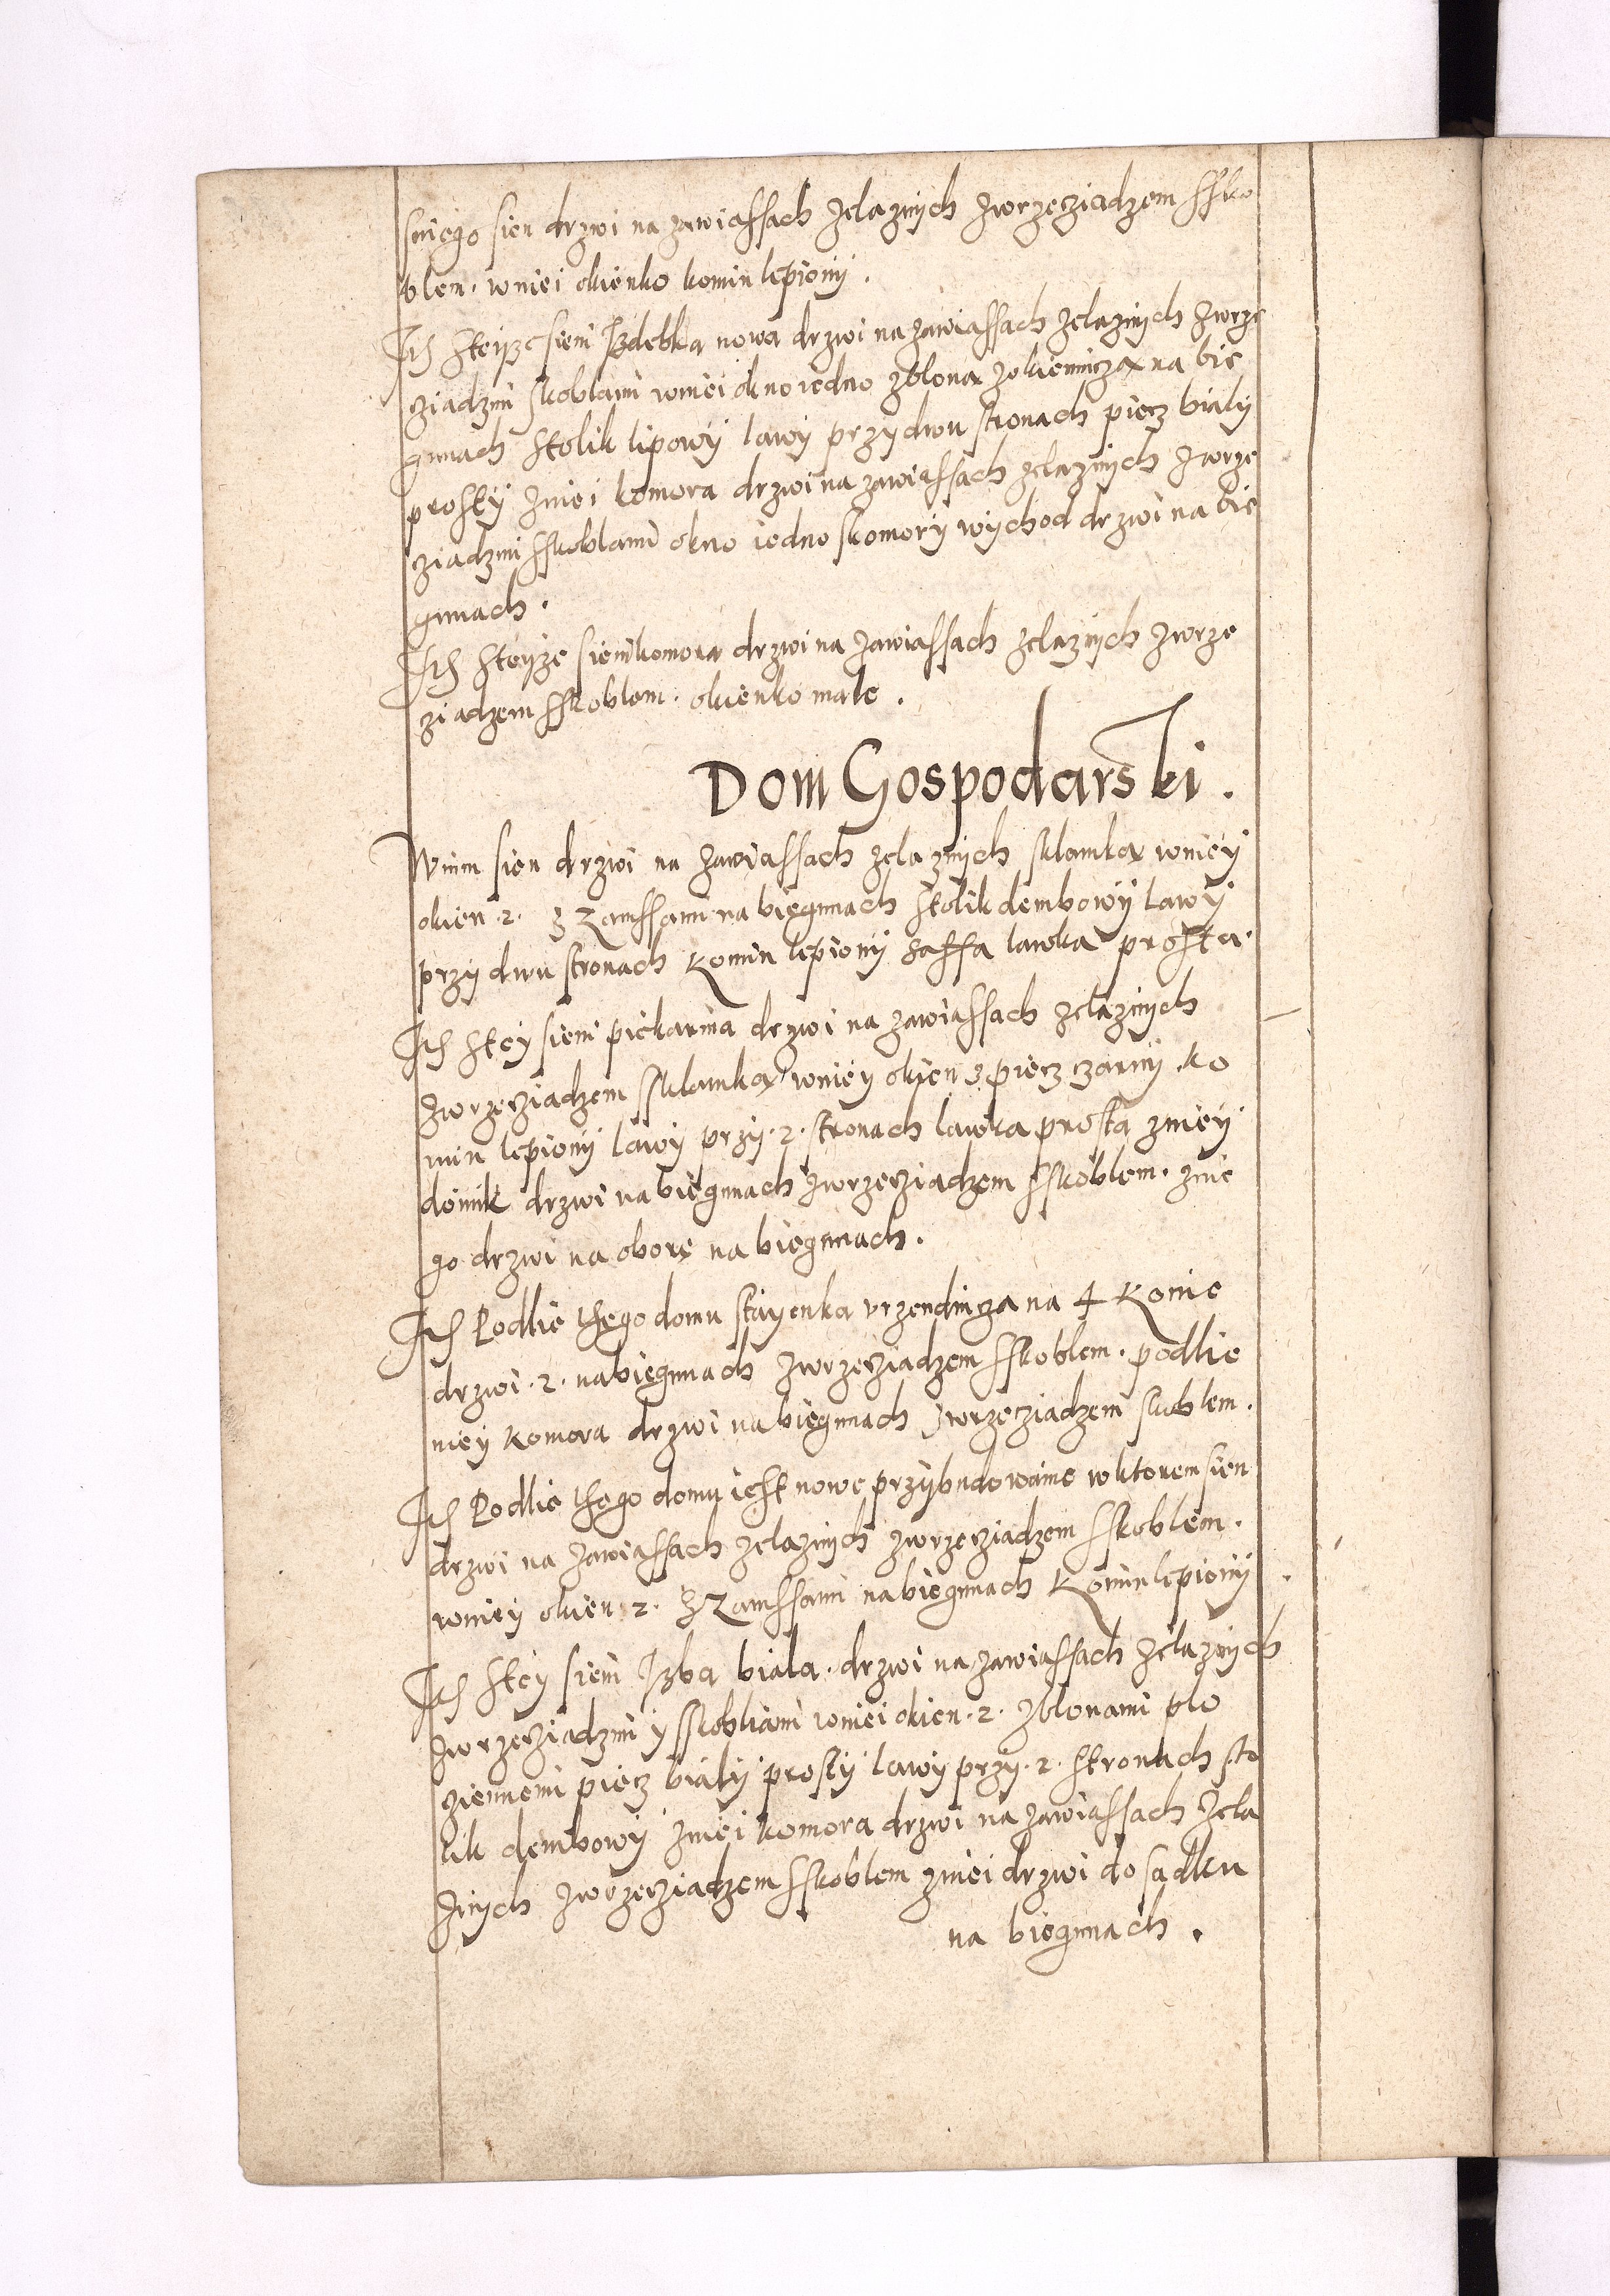 sniego sien drzwi na zawiassach zelaznych zwrzecziadzem ssko
blem. wniei okienko komin lepiony.
Ith steyze sieni Iszdebka nowa drzwi na zawiassach zelaznych zwrze
cziadzmi skoblami wniei okno iedno zblona zokiennicza na bie
gunach stolik lipowy lawy przydwu stronach piecz bialy
prosty zniei komora drzwi na zawiassach zelaznych zwrze
cziadzmi sskoblami okno iedno skomory wychod drzwi na bie
gunach.
Ith steyze sieni komora drzwi na zawiassach zelaznych zwrze
cziadzem sskoblem. okienko male.
Dom Gospodarski.
Wnim sien drzwi na zawiassach zelaznych sklamka wniey
okien .2. z Ramssami na biegunach stolik dembowy lawy
przy dwu stronach Komin lepiony saffa lawka prosta.
Ith stey sieni piekarnia drzwi na zawiassach zelaznych
zwrzecziadzem sklamka wniey okien 3 piecz czarny ko
min lepiony lawy przy .2. stronach lawka prosta zniey
domik drzwi na biegunach zwrzecziadzem sskoblem. znie
go drzwi na obore na biegunach.
Ith Podlie thego domu stayenka vrzendnicza na 4 Konie
drzwi .2. na biegunach zwrzecziadzem sskoblem. podlie
niey Komora drzwi na biegunach zwrzecziadzem skoblem.
Ith Podlie thego domu iest nowe przybudowanie wktorem sien
drzwi na zawiassach zelaznych zwrzecziadzem sskoblem.
wniey okien 2. z Ramssami na biegunach Komin lepiony
Ith stey sieni Izba biala. drzwi na zawiassach zelaznych
zwrzecziadzmi y sskobliami wniei okien .2. zblonami plo
ciennemi piecz bialy prosty lawy przy .2. stronach sto
lik dembowy zniei komora drzwi na zawiassach zela
znych zwrzecziadzem sskoblem zniei drzwi do sadku
na biegunach.